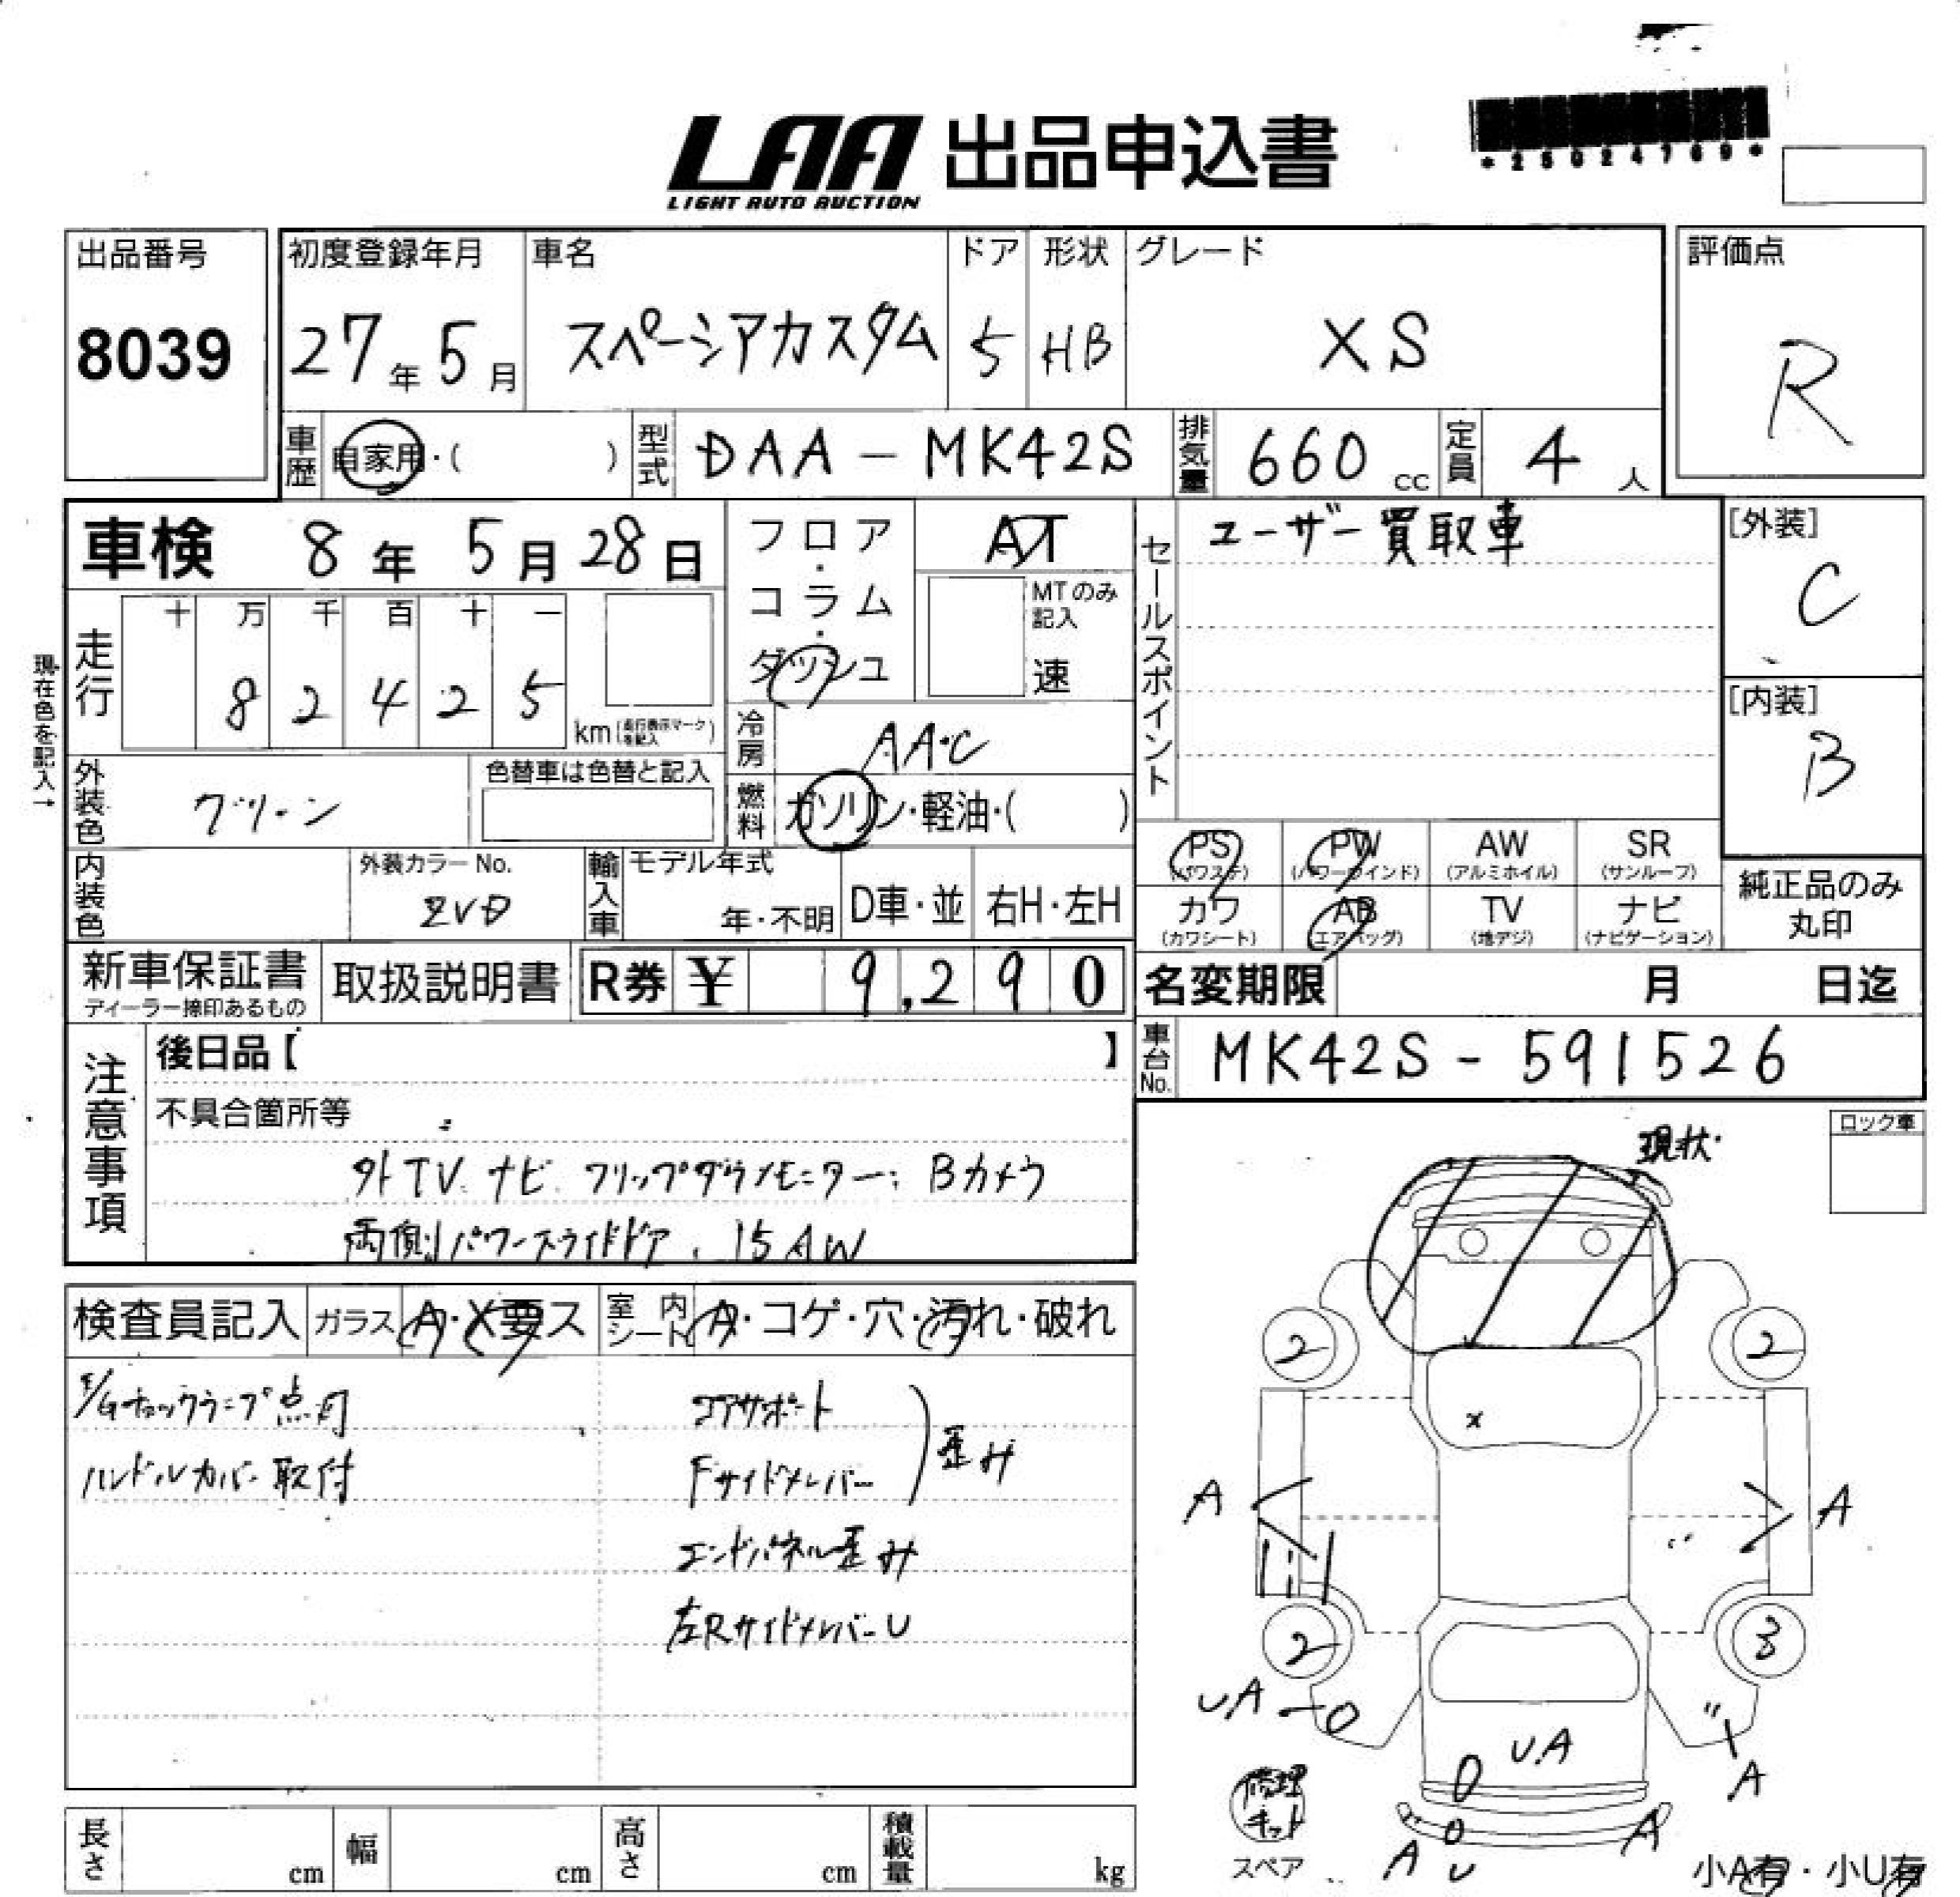 LAA 出品申込書
LIGHT AUTO AUCTION
*25024769*
出品番号
8039
初度登録年月
27年5月
車名
スペーシアカスタム
ドア
5
形状
HB
グレード
XS
評価点
R
車歴
自家用・( )
型式
DAA-MK42S
排気量
660cc
定員
4人
車検 8年5月28日
フロア・コラム・ダッシュ
AT
MTのみ記入
速
セールスポイント
ユーザー買取車
[外装]
C
[内装]
B
現在色を記入→
走行
十 万 千 百 十 一
8 2 4 2 5
km(走行表示マークを記入)
冷房
AAC
燃料
ガソリン・軽油・( )
外装色
グリーン
色替車は色替と記入
内装色
外装カラーNo.
ZVD
輸入車
モデル年式
年・不明
D車・並
右H・左H
PS (パワステ)
PW (パワーウインド)
AW (アルミホイル)
SR (サンルーフ)
カワ (カワシート)
AB (エアバッグ)
TV (地デジ)
ナビ (ナビゲーション)
純正品のみ丸印
新車保証書
ディーラー捺印あるもの
取扱説明書
R券 ¥ 9,290
名変期限 月 日迄
車台No.
MK42S-591526
注意事項
後日品【 】
不具合箇所等
外TV ナビ フリップダウンモニター Bカメラ
両側パワースライドドア、15AW
ロック車
現状
検査員記入
ガラス
A・X要ス
室内シート
A・コゲ・穴・汚れ・破れ
E/Gチェックランプ点灯
ハンドルカバー取付
コアサポート
Fサイドメンバー
歪み
エンドパネル歪み
左RサイドメンバーU
2
2
x
A
A
2
3
UA
U.A
A
A
U
A
修理キット
スペア
小A有・小U有
長さ cm
幅 cm
高さ cm
積載量 kg